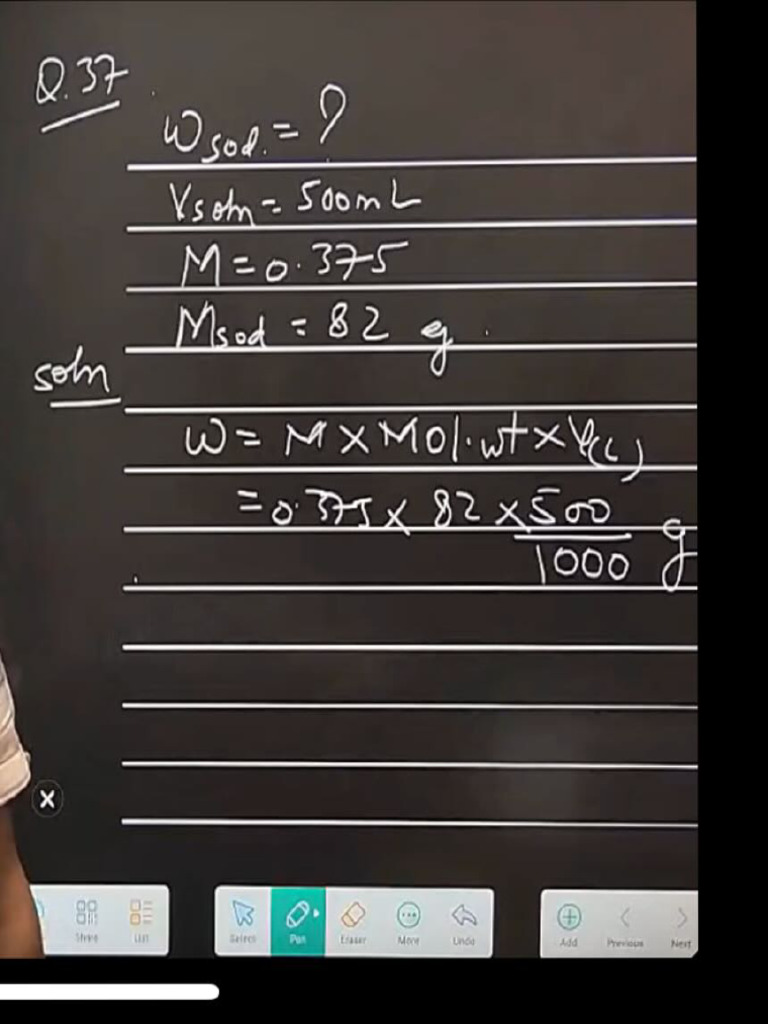 Q.37
Wsod. = ?
Vsoln = 500mL
M = 0.375
Msod = 82 g.
soln
W = M × Mol.wt × V(L)
= 0.375 × 82 × 500/1000 g
Share
List
Select
Pen
Eraser
More
Undo
Add
Previous
Next